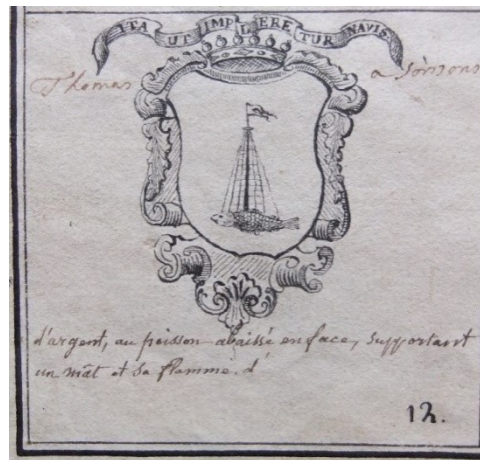 ITA UT IMPLERETUR NAVIS.
Thomas a Soissons
d'argent, au poisson abaissé en face, supportant
un mât et sa flamme. d'
12.